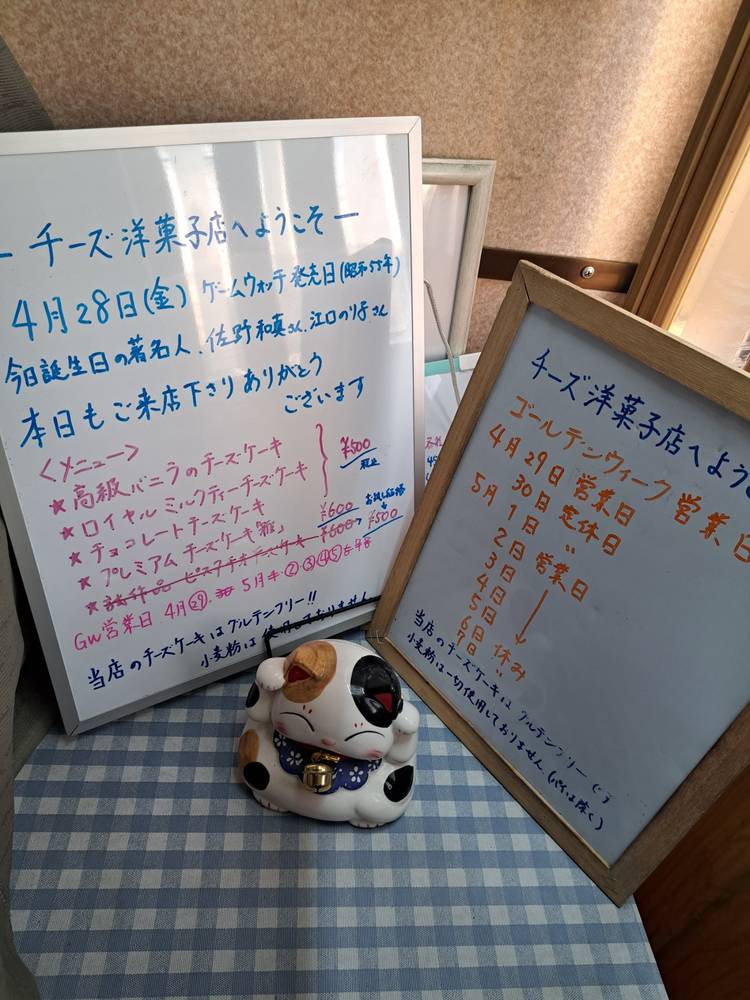 ー チーズ洋菓子店へようこそ ー
4月28日(金) ゲームウォッチ発売日(昭和55年)
今日誕生日の著名人、佐野和真さん、江口のり子さん
本日もご来店下さりありがとう
ございます
<メニュー>
★高級バニラのチーズケーキ
★ロイヤルミルクティーチーズケーキ
★チョコレートチーズケーキ
¥500
税込
★プレミアムチーズケーキ「雅」 ¥600
お試し価格
★試作品 ピスタチオチーズケーキ ¥600 ¥500
GW営業日 4月㉙ 5月 ② ③ ④ ⑤
当店のチーズケーキはグルテンフリー!!
小麦粉は使用しておりません
チーズ洋菓子店へようこ
ゴールデンウィーク 営業日
4月29日 営業日
30日 定休日
5月1日 〃
2日 営業日
3日
4日
5日
6日 休み
7日 〃
当店のチーズケーキは グルテンフリー
小麦粉は一切使用しておりません (パイは除く)